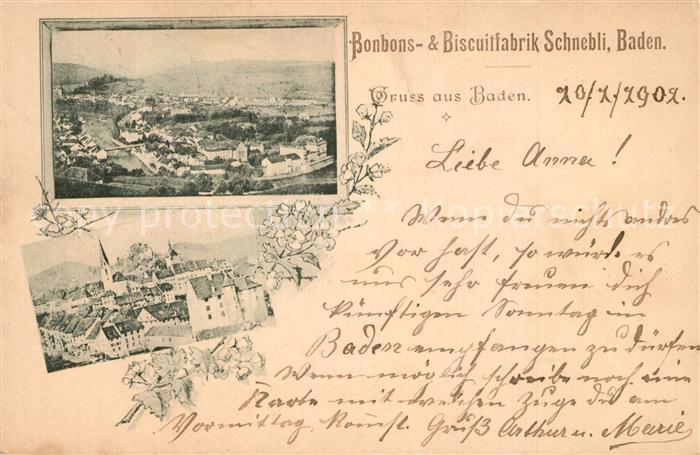 Bonbons- & Biscuitfabrik Schnebli, Baden.
Gruss aus Baden.
20/2/1902.
Liebe Anna!
Wenn du nichts andres
vor hast, so würde es
uns sehr freuen dich
künftigen Sonntag in
Baden empfangen zu dürfen
Wenn möglich schreibe noch eine
Karte mit welchem Zuge du am
Vormittag kommst. Gruß Arthur u. Marie
copy protection * kopierschutz